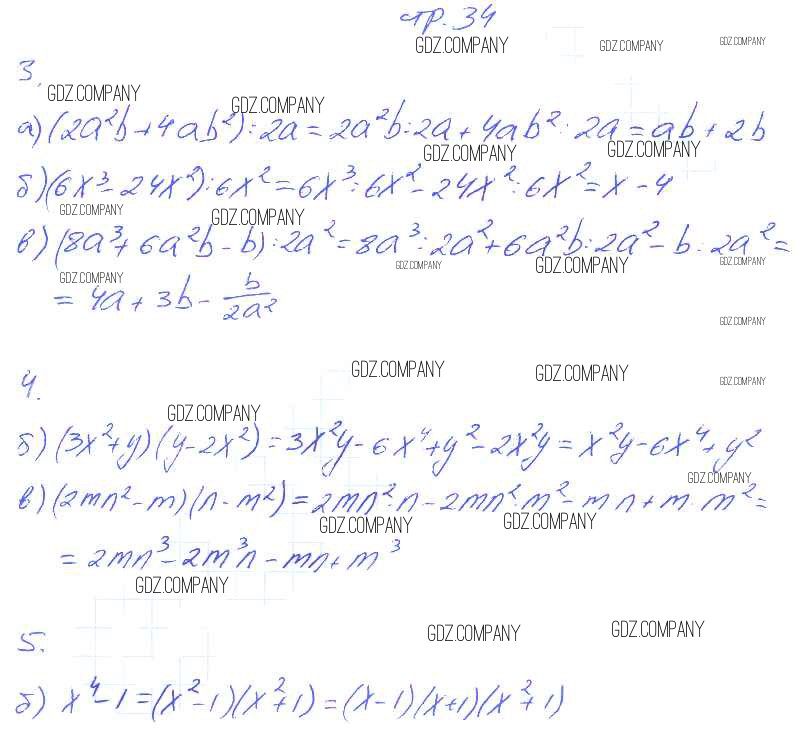 стр. 34
GDZ.COMPANY GDZ.COMPANY GDZ.COMPANY
3.
GDZ.COMPANY GDZ.COMPANY
а) (2a²b + 4ab²) : 2a = 2a²b : 2a + 4ab² : 2a = ab + 2b
GDZ.COMPANY GDZ.COMPANY
б) (6x³ - 24x²) : 6x² = 6x³ : 6x² - 24x² : 6x² = x - 4
GDZ.COMPANY GDZ.COMPANY
в) (8a³ + 6a²b - b) : 2a² = 8a³ : 2a² + 6a²b : 2a² - b : 2a² =
GDZ.COMPANY GDZ.COMPANY GDZ.COMPANY GDZ.COMPANY
= 4a + 3b - b/2a²
GDZ.COMPANY
GDZ.COMPANY GDZ.COMPANY GDZ.COMPANY
4.
GDZ.COMPANY
б) (3x² + y) (y - 2x²) = 3x²y - 6x⁴ + y² - 2x²y = x²y - 6x⁴ + y²
GDZ.COMPANY
в) (2mn² - m) (n - m²) = 2mn² · n - 2mn² · m² - mn + m · m² =
GDZ.COMPANY GDZ.COMPANY
= 2mn³ - 2m³n - mn + m³
GDZ.COMPANY
5.
GDZ.COMPANY GDZ.COMPANY
б) x⁴ - 1 = (x² - 1) (x² + 1) = (x - 1) (x + 1) (x² + 1)